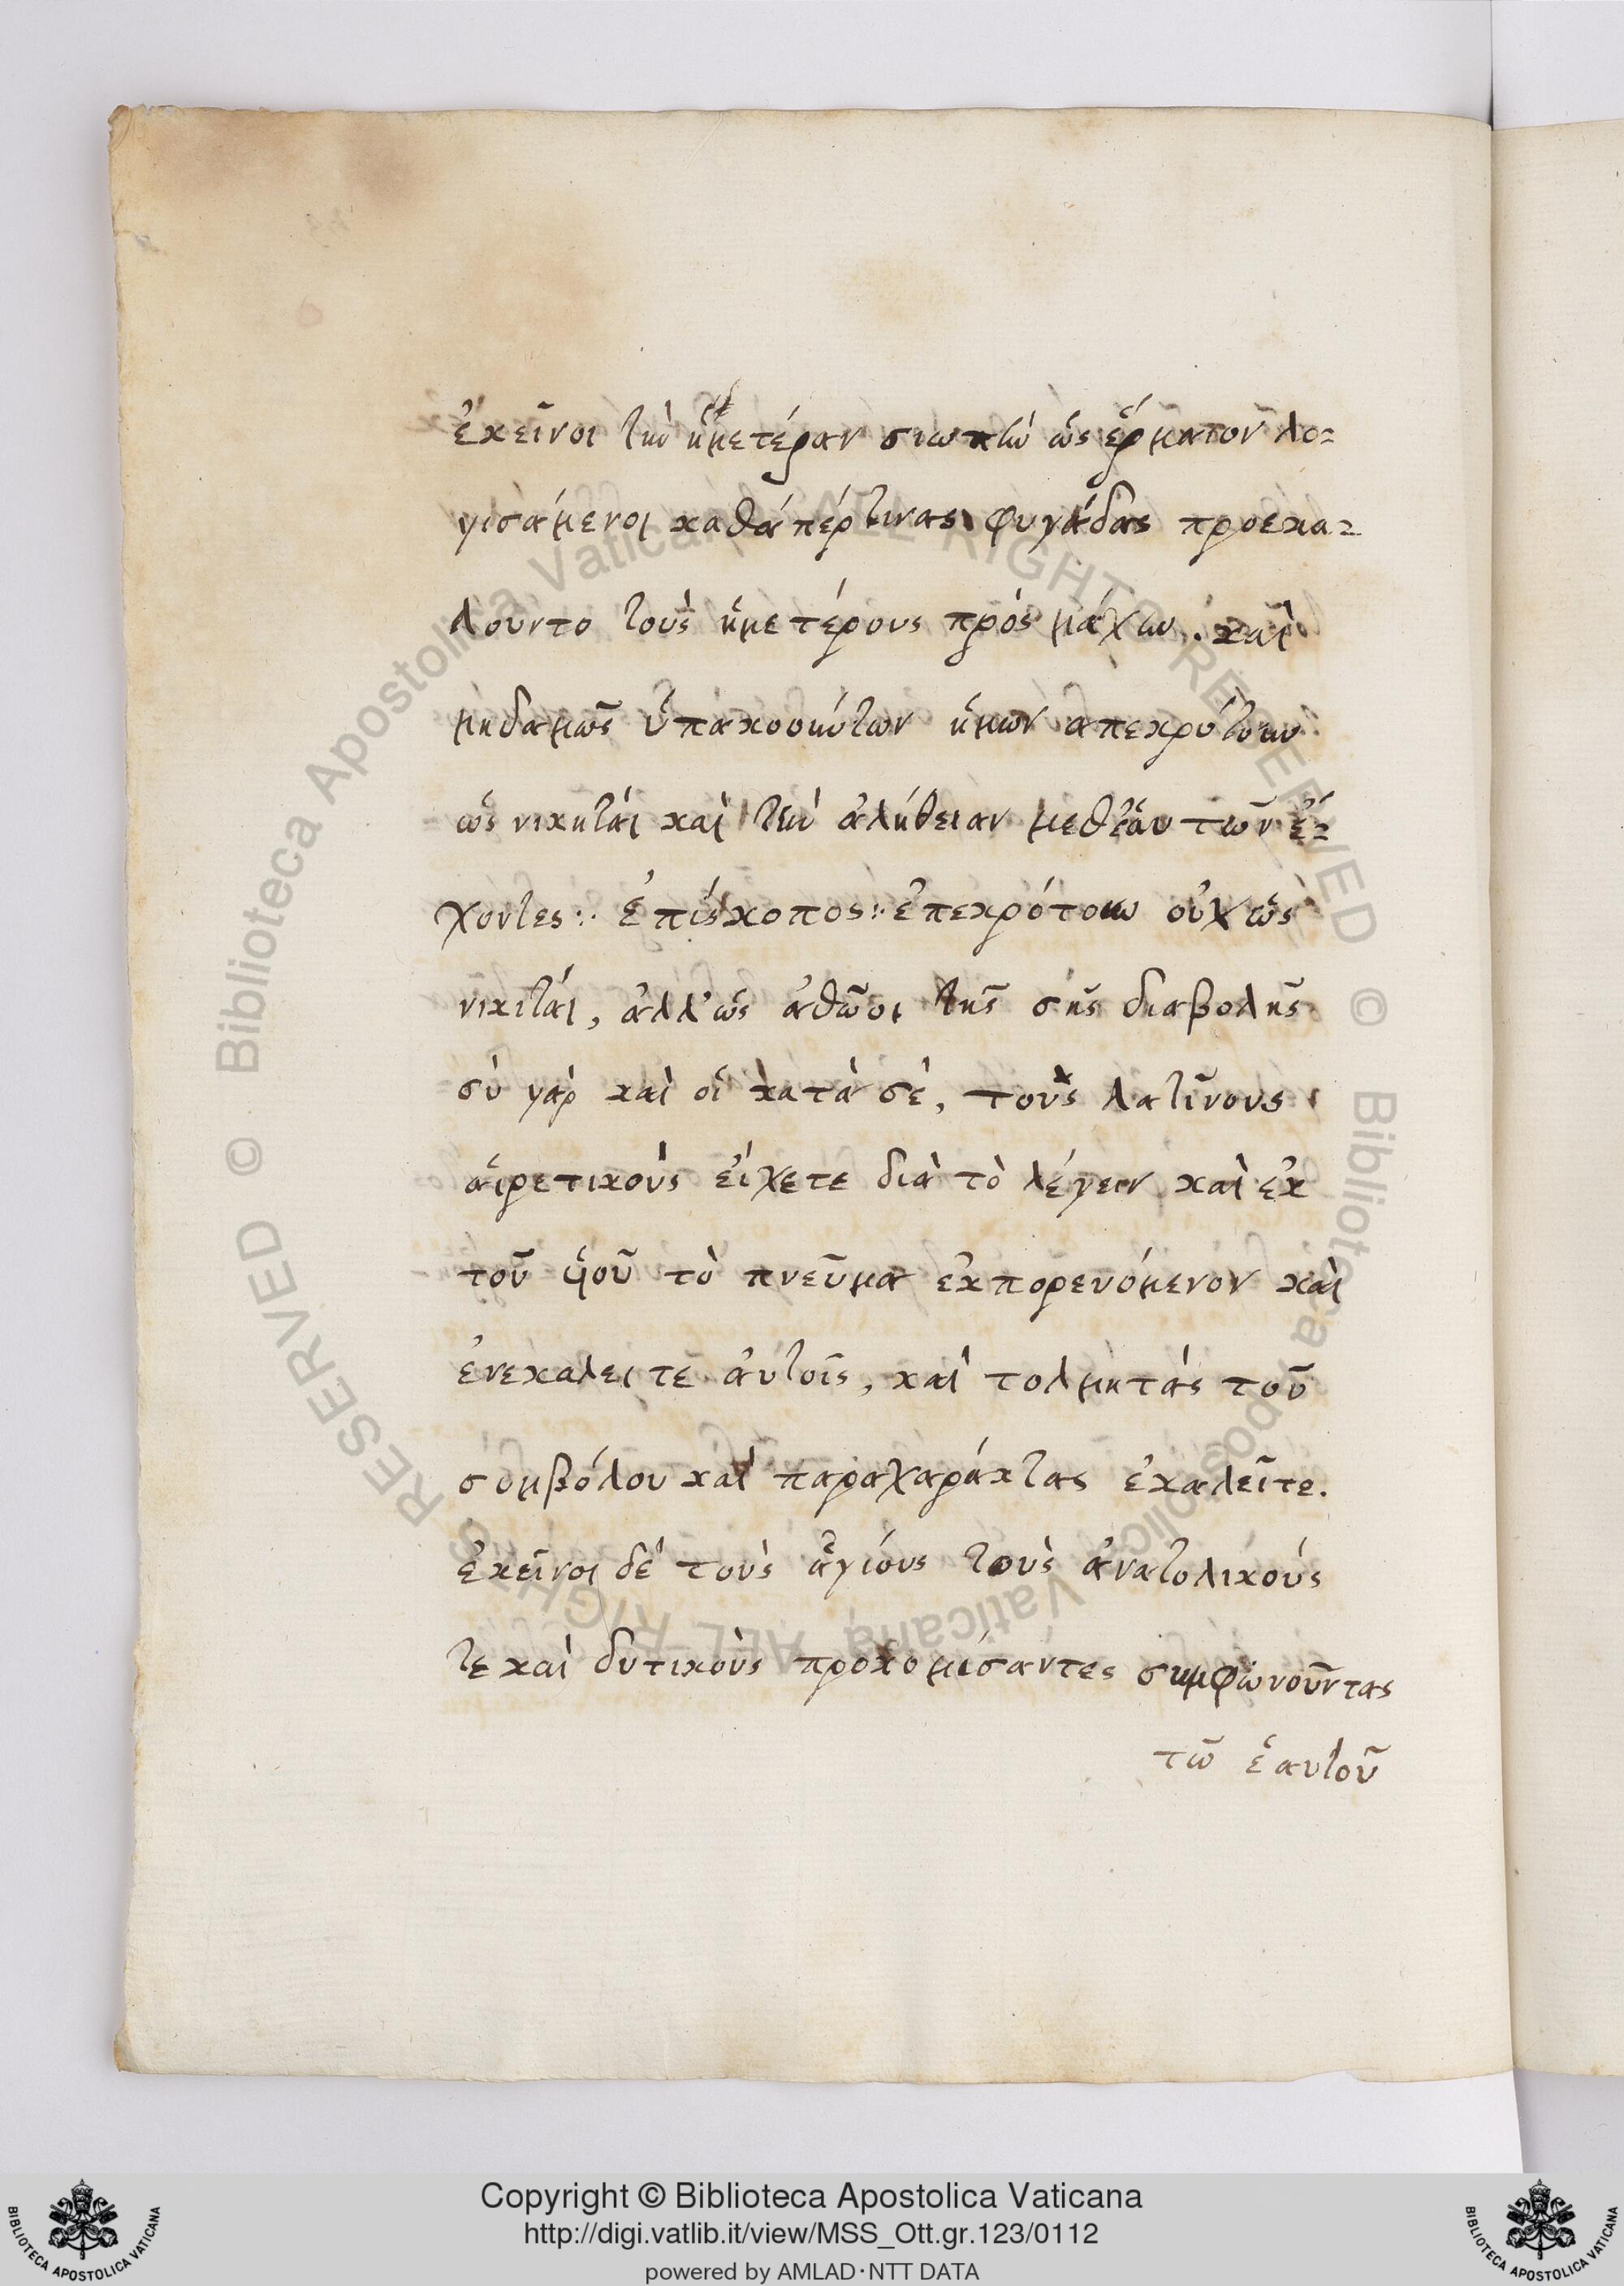 ἐκεῖνοι τὴν ἡμετέραν σιωπὴν ὡς ἕρμαιον λο=
γισάμενοι καθάπέρ τινας φυγάδας προεκα=
λουντο τοὺς ἡμετέρους πρός μάχην. καὶ
μηδαμῶς ὑπακουόντων ἡμῶν ἀπεκρότουν
ὡς νικηταί καὶ τὴν ἀλήθειαν μεθ' ἑαυτῶν ἔ=
χοντες: Ἐπίσκοπος: ἐπεκρότουν οὐχ ὡς
νικιταί, ἀλλ' ὡς ἀθῶοι τῆς σῆς διαβολῆς
σὺ γὰρ καὶ οἱ κατὰ σέ, τοὺς λατῖνους
αἱρετικοὺς εἴχετε διὰ τὸ λέγειν καὶ ἐκ
τοῦ ὑιοῦ τὸ πνεῦμα ἐκπορευόμενον καὶ
ἐνεκαλειτε αὐτοῖς, καὶ τολμητάς τοῦ
συμβόλου καὶ παραχαράκτας ἐκαλεῖτε.
ἐκεῖνοι δέ τοὺς ἁγίους τοὺς ἀνατολικούς
τε καὶ δυτικοὺς προκομίσαντες συμφωνοῦντας
τῶ ἑαυτοῦ
Copyright © Biblioteca Apostolica Vaticana
http://digi.vatlib.it/view/MSS_Ott.gr.123/0112
powered by AMLAD·NTT DATA
BIBLIOTECA APOSTOLICA VATICANA
BIBLIOTECA APOSTOLICA VATICANA